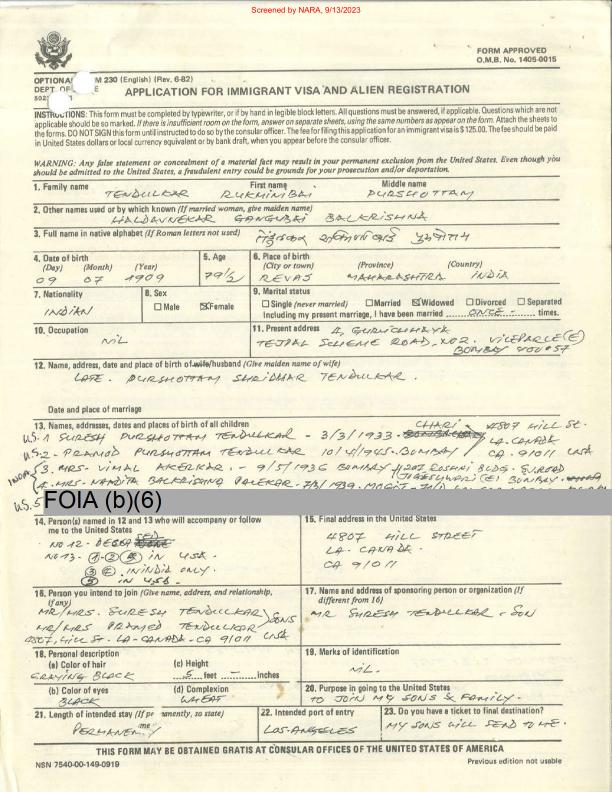 Screened by NARA, 9/13/2023
FORM APPROVED
O.M.B. No. 1405-0015
OPTIONAL M 230 (English) (Rev. 6-82)
DEPT. OF E
APPLICATION FOR IMMIGRANT VISA AND ALIEN REGISTRATION
INSTRUCTIONS: This form must be completed by typewriter, or if by hand in legible block letters. All questions must be answered, if applicable. Questions which are not
applicable should be so marked. If there is insufficient room on the form, answer on separate sheets, using the same numbers as appear on the form. Attach the sheets to
the forms. DO NOT SIGN this form until instructed to do so by the consular officer. The fee for filing this application for an immigrant visa is $125.00. The fee should be paid
in United States dollars or local currency equivalent or by bank draft, when you appear before the consular officer.
WARNING: Any false statement or concealment of a material fact may result in your permanent exclusion from the United States. Even though you
should be admitted to the United States, a fraudulent entry could be grounds for your prosecution and/or deportation.
1. Family name First name Middle name
TENDULKAR RUKMINIBAI PURSHOTTAM
2. Other names used or by which known (If married woman, give maiden name)
HALDAVNEKAR GANGUBAI BALKRISHNA
3. Full name in native alphabet (If Roman letters not used)
4. Date of birth
(Day) (Month) (Year)
09 07 1909
5. Age
79½
6. Place of birth
(City or town) (Province) (Country)
REVAS MAHARASHTRA INDIA
7. Nationality
INDIAN
8. Sex
☐ Male ☒ Female
9. Marital status
☐ Single (never married) ☐ Married ☒ Widowed ☐ Divorced ☐ Separated
Including my present marriage, I have been married ONCE times.
10. Occupation
NIL
11. Present address 4, GURUCHHAYA
TEJPAL SCHEME ROAD, NO 2. VILEPARLE (E)
BOMBAY 400057
12. Name, address, date and place of birth of wife/husband (Give maiden name of wife)
LATE. PURSHOTTAM SHRIDHAR TENDULKAR.
Date and place of marriage
13. Names, addresses, dates and places of birth of all children
U.S. 1 SURESH PURSHOTTAM TENDULKAR - 3/3/1933 CHARI 4807 HILL ST.
U.S. 2 - PRAMOD PURSHOTTAM TENDULKAR 10/4/1945. BOMBAY LA-CANADA CA. 91011 USA
INDIA 3. MRS. VIMAL AKERKAR. - 9/5/1936 BOMBAY ROSHNI BLDG.
4. MRS. NANDITA BALKRISHNA PALEKAR JOGESHWARI (E) BOMBAY.
U.S. 5
FOIA (b)(6)
14. Person(s) named in 12 and 13 who will accompany or follow
me to the United States
NO 12 - DECEASED
NO 13 - 1 - 2 IN USA.
IN INDIA ONLY.
5 IN USA.
15. Final address in the United States
4807 HILL STREET
LA-CANADA.
CA 91011
16. Person you intend to join (Give name, address, and relationship,
if any)
MR/MRS. SURESH TENDULKAR
MR/MRS PRAMOD TENDULKAR SONS
4807, HILL ST. LA-CANADA - CA 91011 USA
17. Name and address of sponsoring person or organization (If
different from 16)
MR SURESH TENDULKAR - SON
18. Personal description
(a) Color of hair (c) Height
GRAYING BLACK 5 feet - inches
(b) Color of eyes (d) Complexion
BLACK WHEAT
19. Marks of identification
NIL.
20. Purpose in going to the United States
TO JOIN MY SONS & FAMILY.
21. Length of intended stay (If permanently, so state)
PERMANENT
22. Intended port of entry
LOS-ANGELES
23. Do you have a ticket to final destination?
MY SONS WILL SEND TO ME.
THIS FORM MAY BE OBTAINED GRATIS AT CONSULAR OFFICES OF THE UNITED STATES OF AMERICA
NSN 7540-00-149-0919
Previous edition not usable